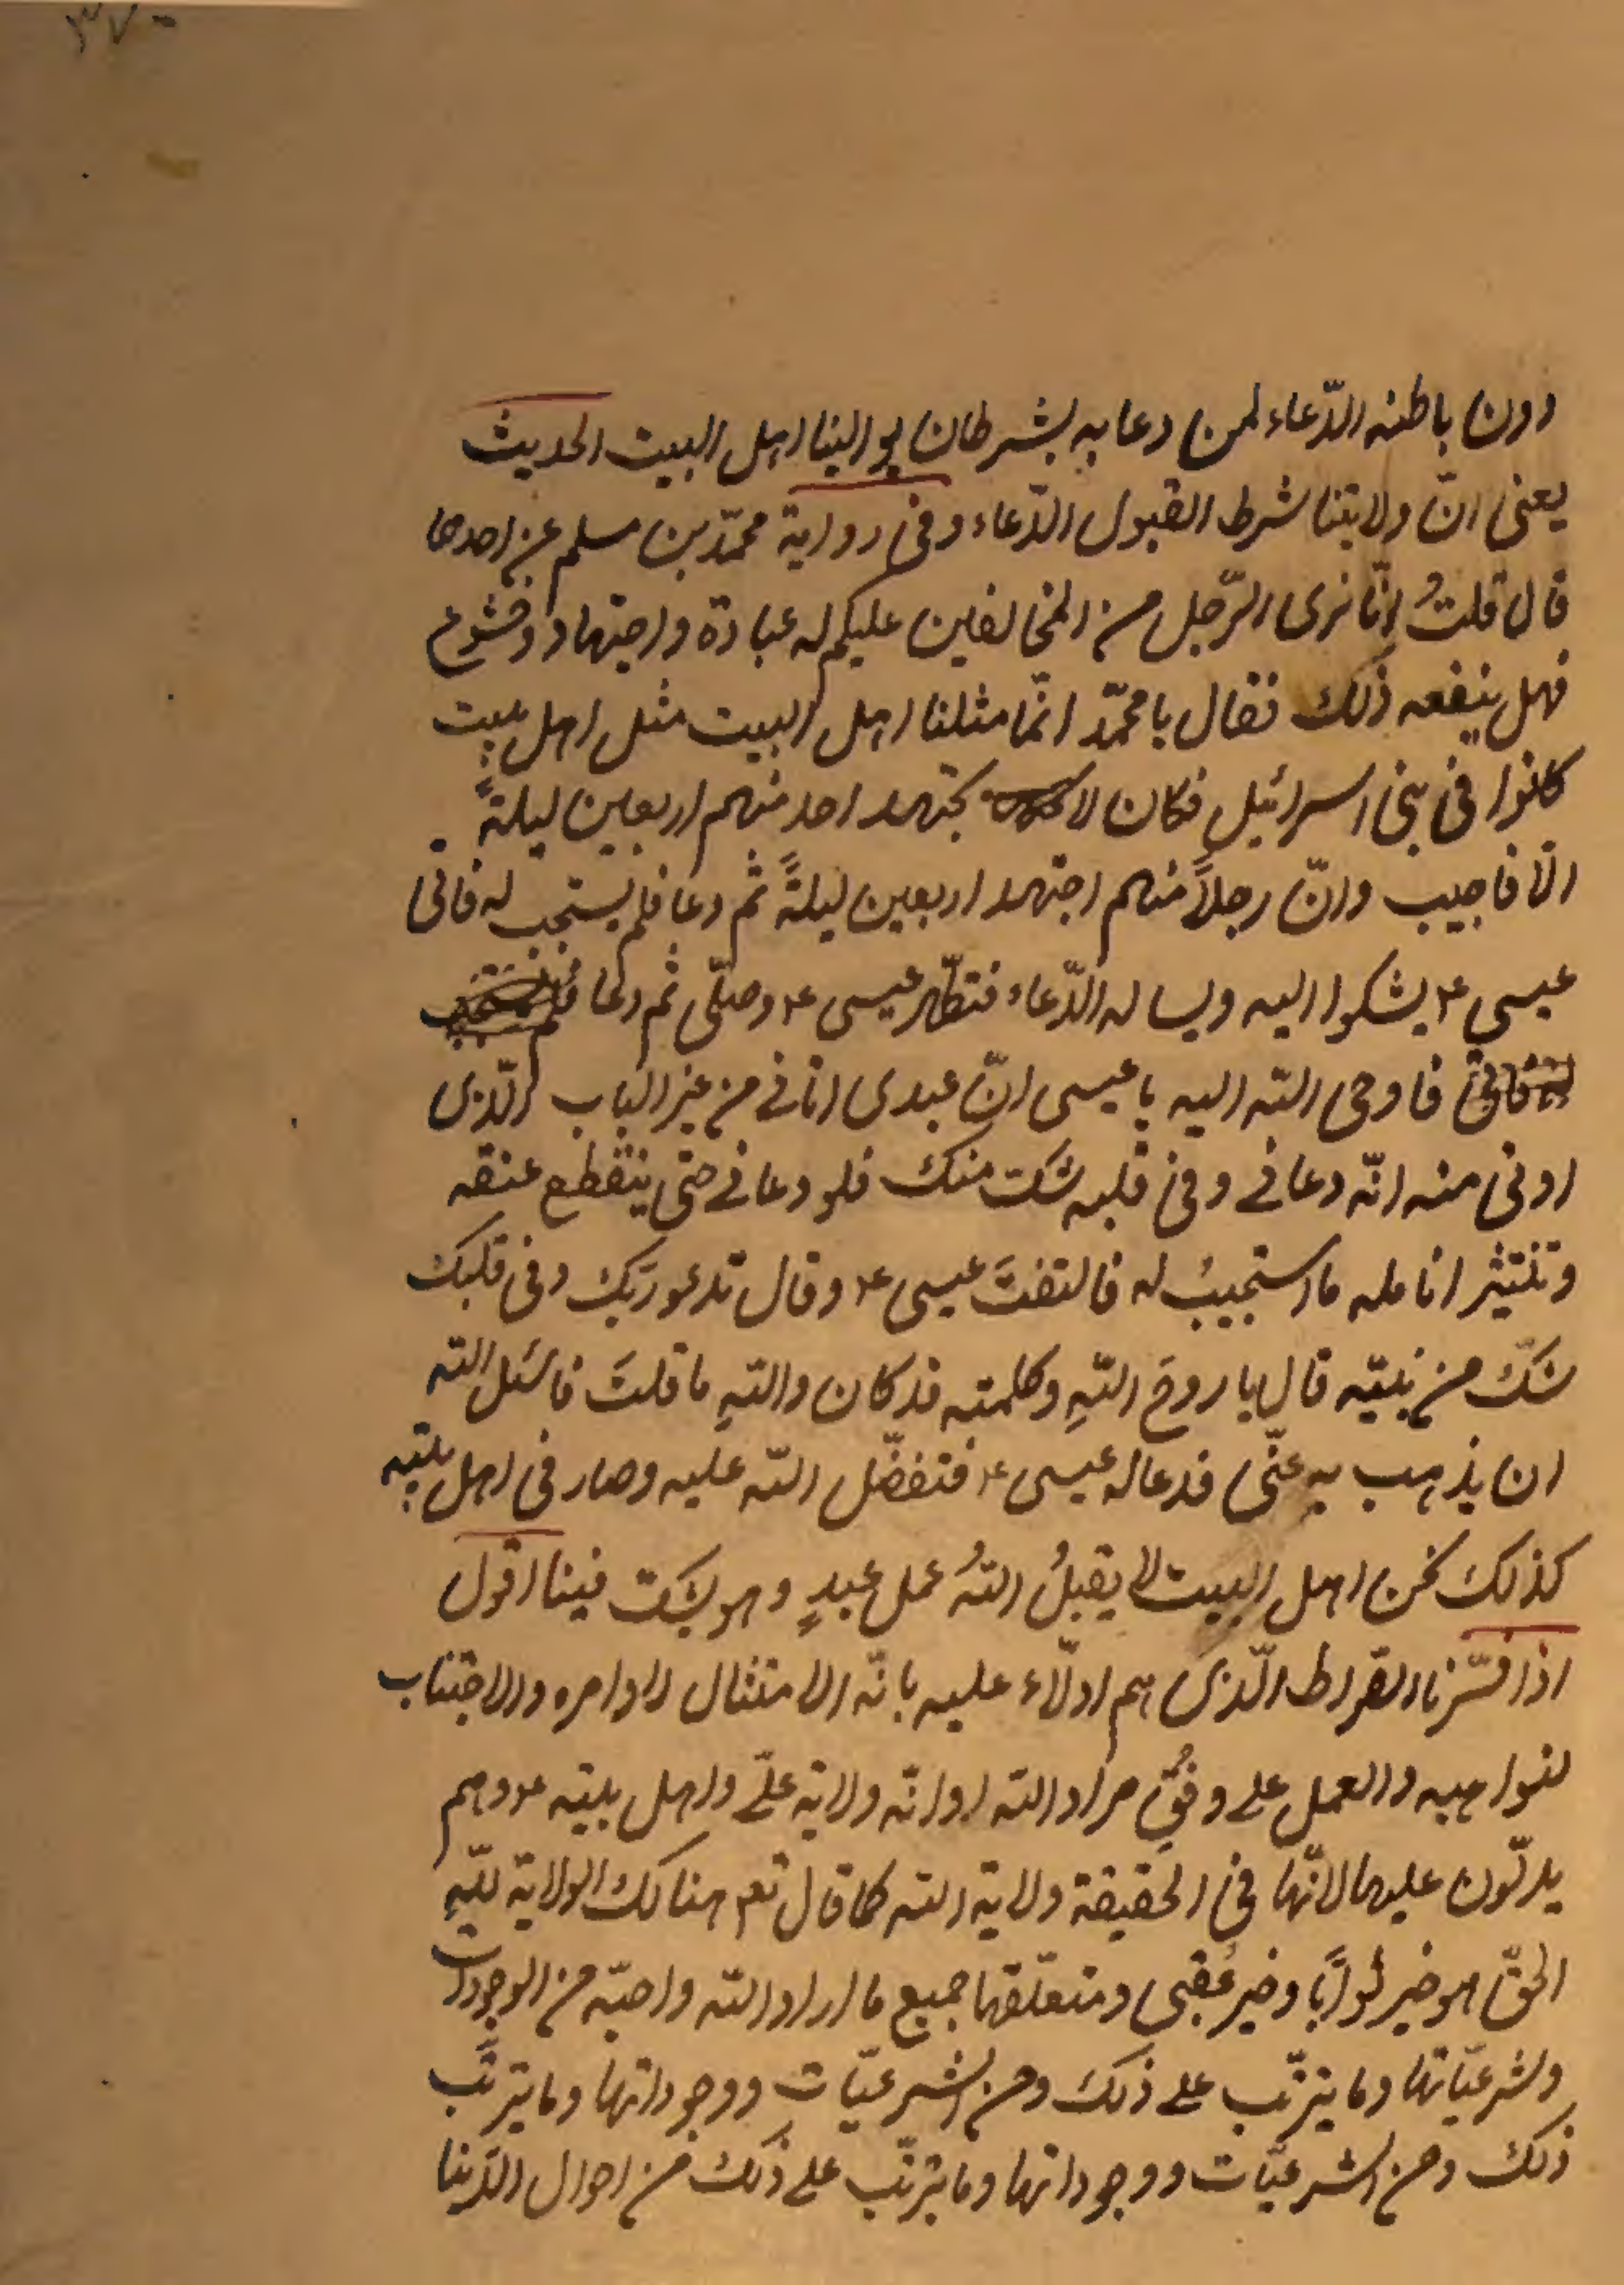 ٣٧٠
دون باطنه الدّعاء لمن دعا به بشرط ان يوالينا اهل البيت الحديث
يعنى انّ ولايتنا شرط القبول الدّعاء وفى رواية محمّد بن مسلم عن احدهما
قال قلتُ انّا نرى الرّجل من المخالفين عليكم له عبادة واجتهاد وخشوع
فهل ينفعه ذلك فقال يا محمّد انّما مثلنا اهل البيت مثل اهل بيت
كانوا فى بنى اسرائيل فكان لا يجتهد احد منهم اربعين ليلةً
الّا فاجيب وانّ رجلاً منهم اجتهد اربعين ليلةً ثم دعا فلم يستجب له فاتى
عيسى ع يشكوا اليه ويساله الدّعاء فتطهّر عيسى ع وصلّى ثم دعا
فاوحى الله اليه يا عيسى انّ عبدى اتانى من غير الباب الّذى
اوتى منه انّه دعانى وفى قلبه شكّ منك فلو دعانى حتى ينقطع عنقه
وتنتثر انامله ما استجيبُ له فالتفتَ عيسى ع وقال تدعو ربّك وفى قلبك
شكّ من نبيّه قال يا روحَ اللهِ وكلمته قد كان واللهِ ما قلتَ فاسئل الله
ان يذهب به عنّى فدعا له عيسى ع فتفضّل الله عليه وصار فى اهل بيته
كذلك نحن اهل البيت لا يقبلُ اللهُ عمل عبدٍ وهو يشكّ فينا اقول
اذا فسّرنا الصّراط الّذى هم ادلّاء عليه بانّه الامتثال لاوامره والاجتناب
لنواهيه والعمل على وفُقِ مراد الله او انّه ولاية علىّ واهل بيته ع وهم
يدلّون عليها لانّها فى الحقيقة ولاية الله كما قال تعم هنالك الولاية للّهِ
الحقّ هو خير ثواباً وخير عُقبى ومتعلّقها جميع ما اراد الله واحبّه من الوجودات
وشرعيّاتها وما يترتّب على ذلك ومن الشرعيّات ووجوداتها وما يترتّب
ذلك ومن الشرعيّات ووجوداتها وما يترتّب على ذلك من احوال الدّنيا